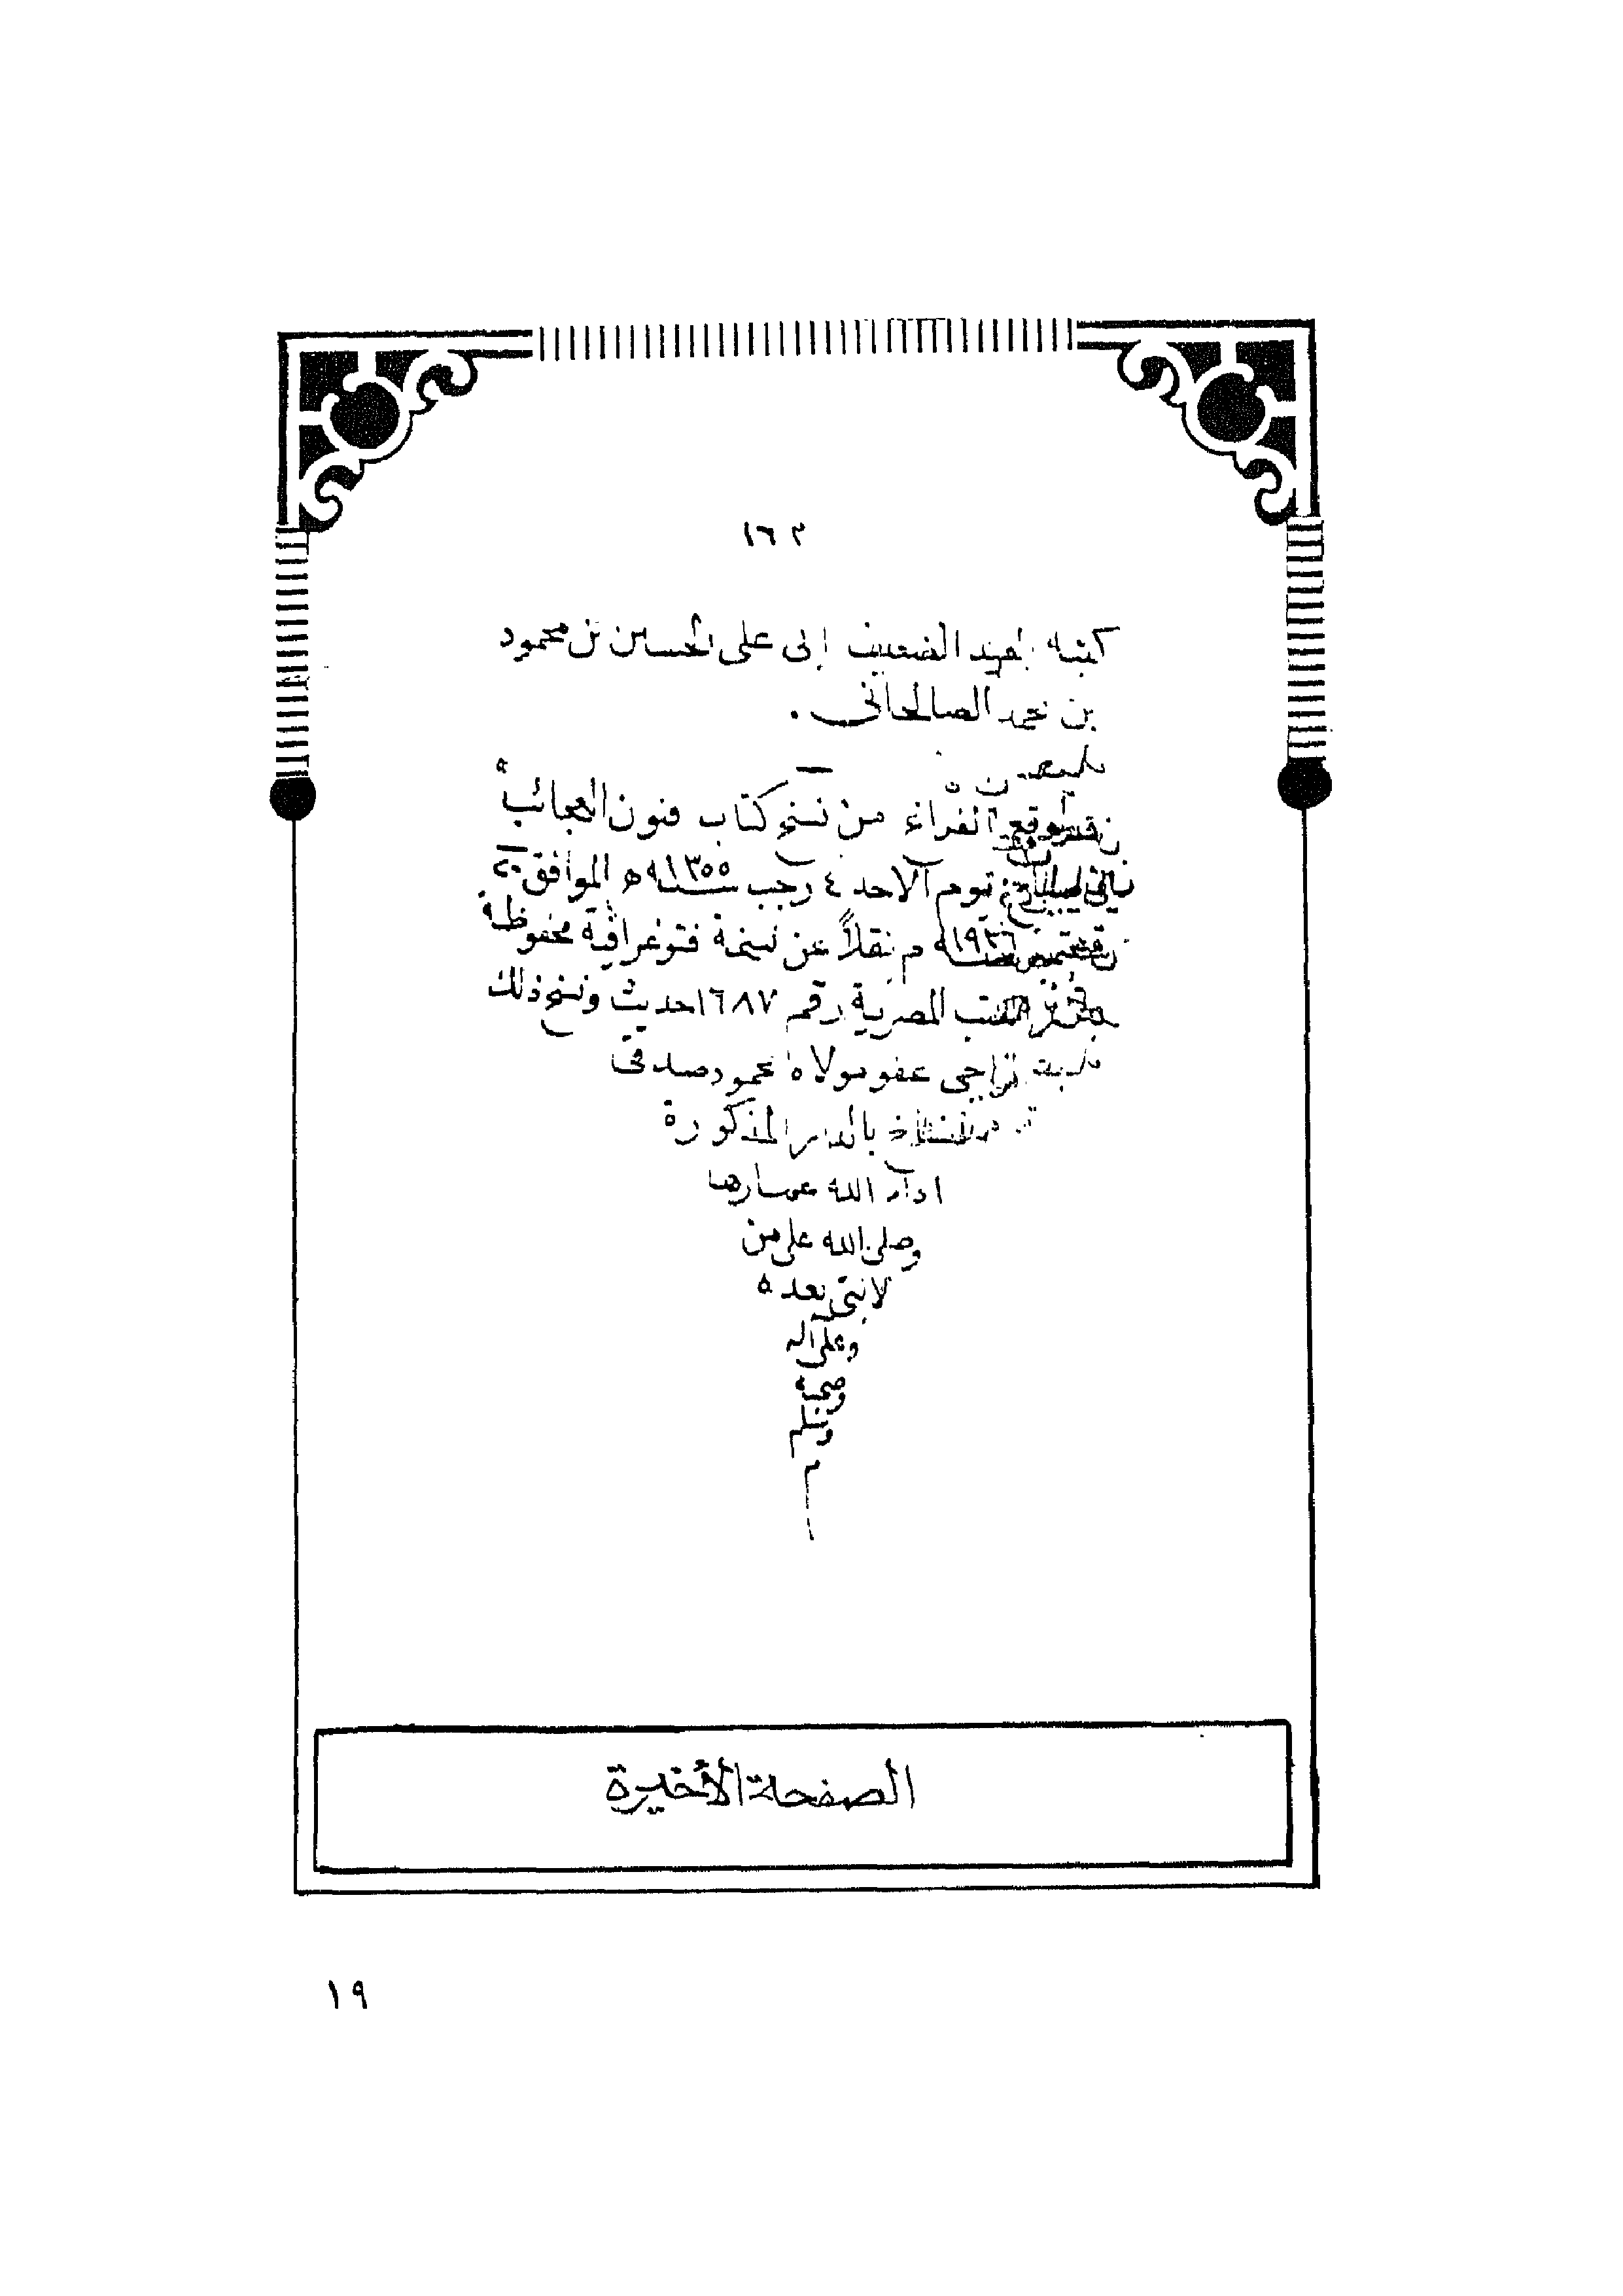 ١٦٢
كتبه العبد الضعيف إلى على الحسين بن محمود
بن محمد الصالحانى .
الفراغ من نسخ كتاب فنون العجائب
يوم الاحد ٤ رجب سنة ١٣٥٥ ه الموافق ٢٠
سنة ١٩٣٦ م نقلاً عن نسخة فتوغرافية محفوظة
الكتب المصرية رقم ١٦٨٧ حديث ونسخ ذلك
الراجى عفو مولاه محمود صدقى
النساخ بالدار المذكورة
ادام الله عمارها
وصلى الله على من
لا نبى بعده
وعلى آله
وصحبه
وسلم
م
الصفحة الأخيرة
١٩